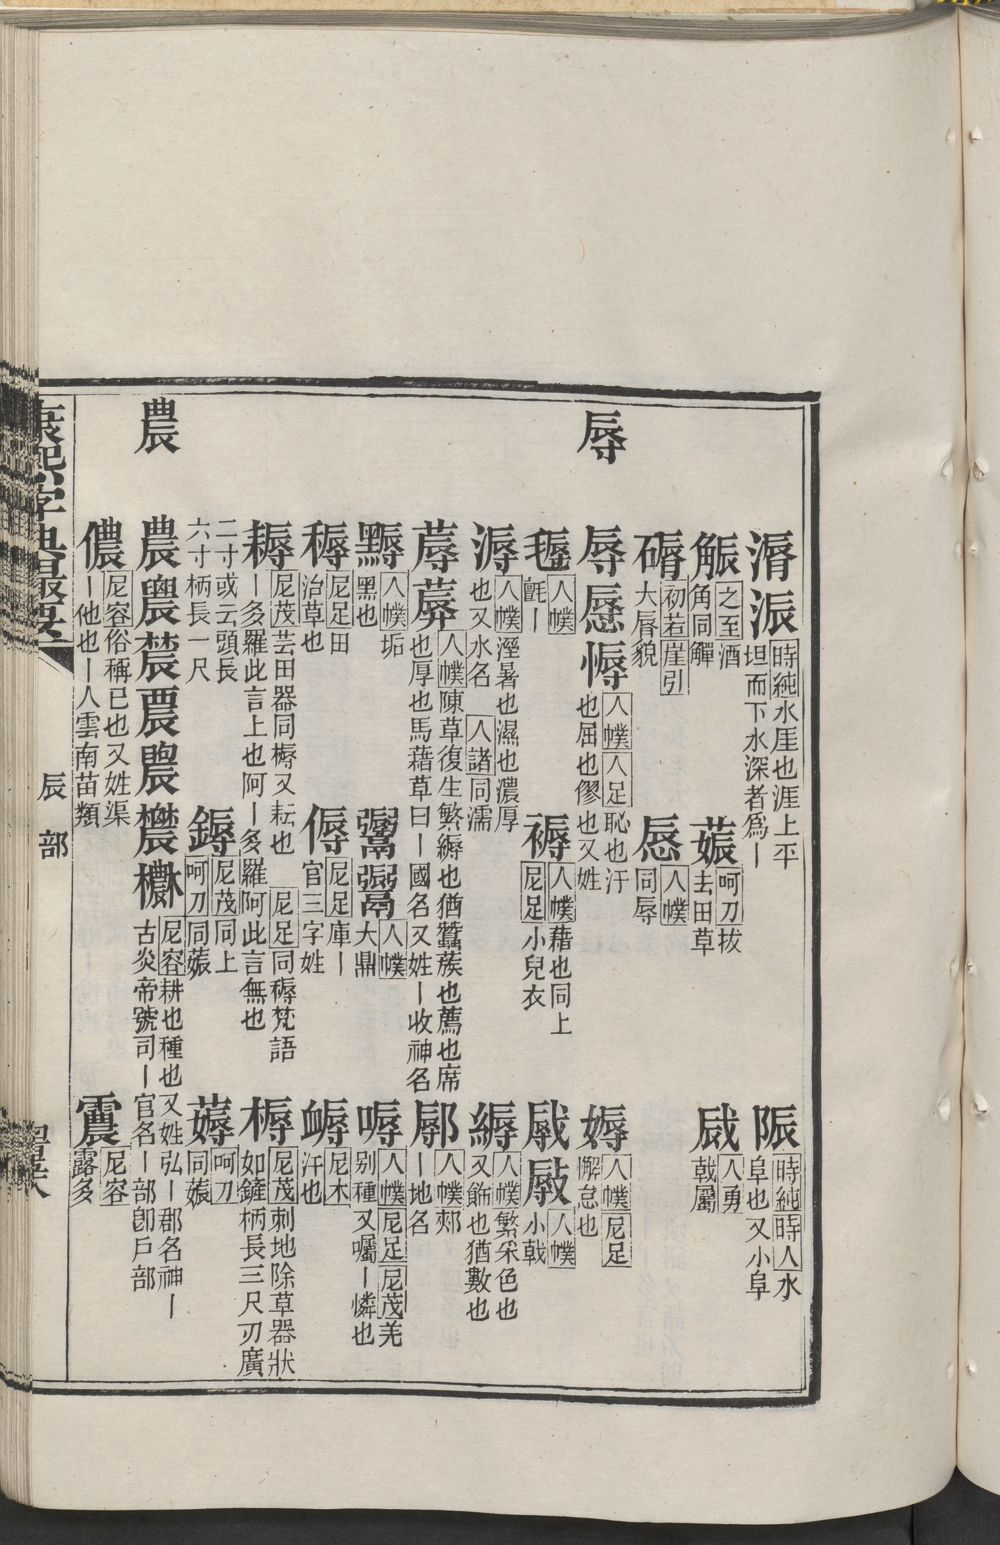 漘浱時純水厓也涯上平坦而下水深者為丨
陙時純時人水阜也又小阜
䚨之至酒角同觶
蓐呵刀拔去田草
人勇戟屬
初若崖引大脣貌
人㡤同辱
辱
辱㥛人㡤人足恥也汗也屈也僇也又姓
媷人㡤尼足懈怠也
人㡤氈丨
褥人㡤藉也同上尼足小兒衣
人㡤小戟
溽人㡤溼暑也濕也濃厚也又水名人諸同濡
縟人㡤繁采色也又飾也猶數也
蓐人㡤陳草復生繁縟也猶蠶蔟也薦也席也厚也馬藉草曰丨國名又姓丨收神名
鄏人㡤郟丨地名
人㡤垢黑也
人㡤大鼎
嗕人㡤尼足尼茂羌别種又囑丨憐也
䅶尼足田治草也
傉尼足庫丨官三字姓
䘐尼木汗也
耨尼茂芸田器同槈又耘也尼足同䅶梵語丨多羅此言上也阿丨多羅阿此言無也
槈尼茂刺地除草器狀如鏟柄長三尺刃廣
二寸或云頭長六寸柄長一尺
鎒尼茂同上呵刀同薅
薅呵刀同薅
農
農辳尼容耕也種也又姓弘丨郡名神丨古炎帝號司丨官名丨部卽戶部
儂尼容俗稱己也又姓渠丨他也丨人雲南苗類
震尼容露多
康熙字典撮要
辰部